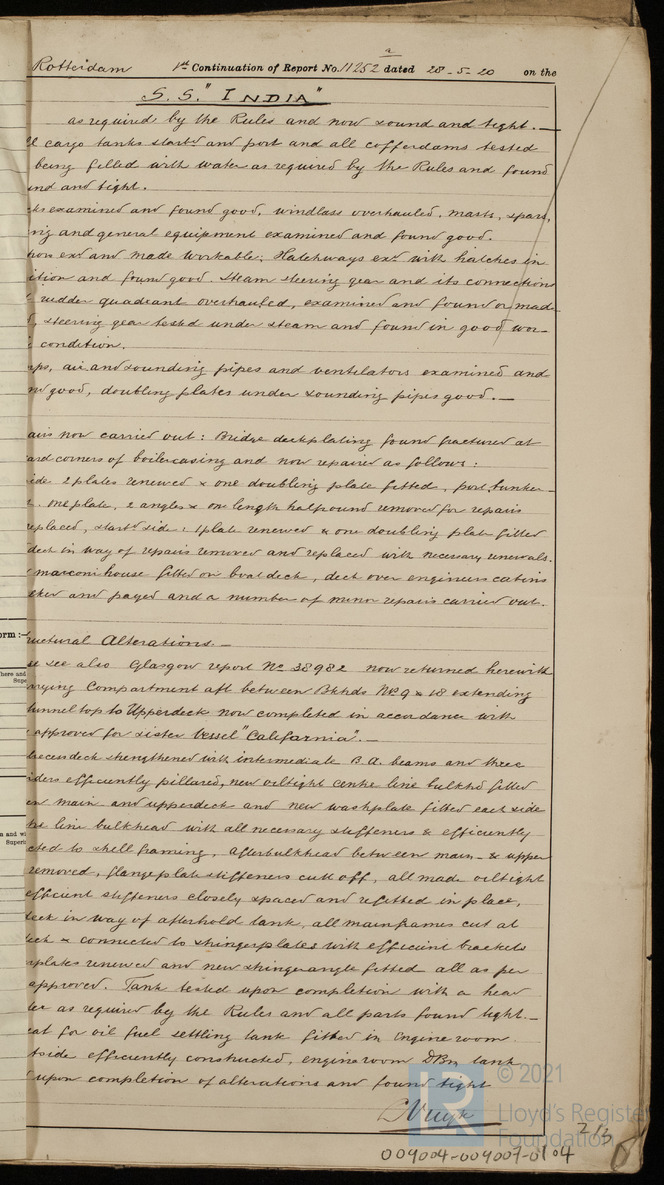 Rotterdam 1st Continuation of Report No. 11252a dated 28-5-20 on the
S.S. "INDIA"
as required by the Rules and now sound and tight. —
ll cargo tanks starbd and port and all cofferdams tested
being filled with water as required by the Rules and found
und and tight.
cks examined and found good, windlass overhauled, masts, spars,
rig and general equipment examined and found good.
exd and made workable; Hatchways exd with hatches in
ition and found good. Steam steering gear and its connections
rudder quadrant overhauled, examined and found or made
d, steering gear tested under steam and found in good wor-
condition.
mps, air and sounding pipes and ventilators examined and
nd good, doubling plates under sounding pipes good. —
airs now carried out: Bridge deckplating found fractured at
ard corners of boilercasing and now repaired as follows:
ide 2 plates renewed & one doubling plate fitted, port bunker
one plate, 2 angles & one length halfround removed for repairs
eplaced, starbd side: 1 plate renewed & one doubling plate fitted
deck in way of repairs removed and replaced with necessary renewals.
marconi house fitted on boatdeck, deck over engineers cabins
lked and payed and a number of minor repairs carried out.
orm :—
ructural Alterations. —
se see also Glasgow report No 38982 now returned herewith
here and
Supe
arrying Compartment aft between Bkhds No 9 & 18 extending
tunnel top to Upperdeck now completed in accordance with
approved for sister Vessel "California". —
Recessdeck strengthened with intermediate B.A. beams and three
irders efficiently pillared, new oiltight centre line bulkhd fitted
en main and upperdeck and new washplate fitted each side
n and w
Superi
tre line bulkhead with all necessary stiffeners & efficiently
cted to shell framing. Afterbulkhead between main & upper
removed, flangeplate stiffeners cutt off, all made oiltight
efficient stiffeners closely spaced and refitted in place,
deck in way of afterhold tank, all mainframes cut at
deck & connected to stringerplates with efficient brackets
rplates renewed and new stringerangle fitted all as per
approved. Tank tested upon completion with a head
ter as required by the Rules and all parts found tight. —
eat for oil fuel settling tank fitted in Engine room
side efficiently constructed, engineroom DBm tank
upon completion of alterations and found tight
© 2021
LR
Lloyd's Register
Foundation
009004-009007-0104